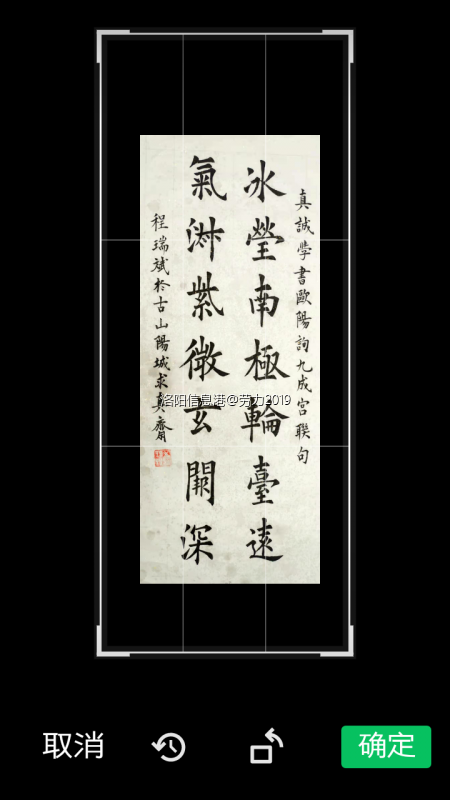 真誠學書歐陽詢九成宮聯句
冰瑩南極輪臺遠
氣淑紫微玄深
程瑞斌於古山陽城求真齋
洛阳信息港@劳力2019
取消
确定